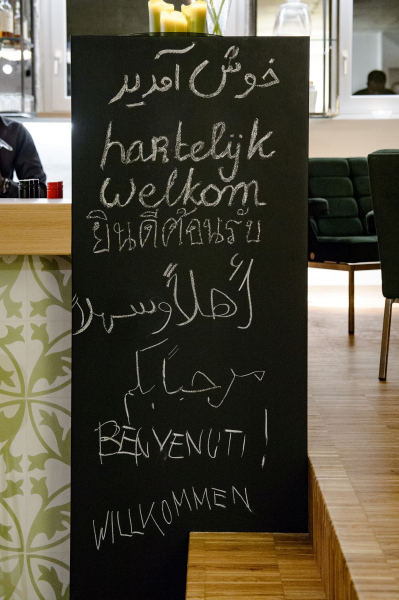 خوش آمدید
hartelijk
welkom
ยินดีต้อนรับ
أهلاً وسهلاً
مرحباً بكم
BENVENUTI!
WILLKOMMEN